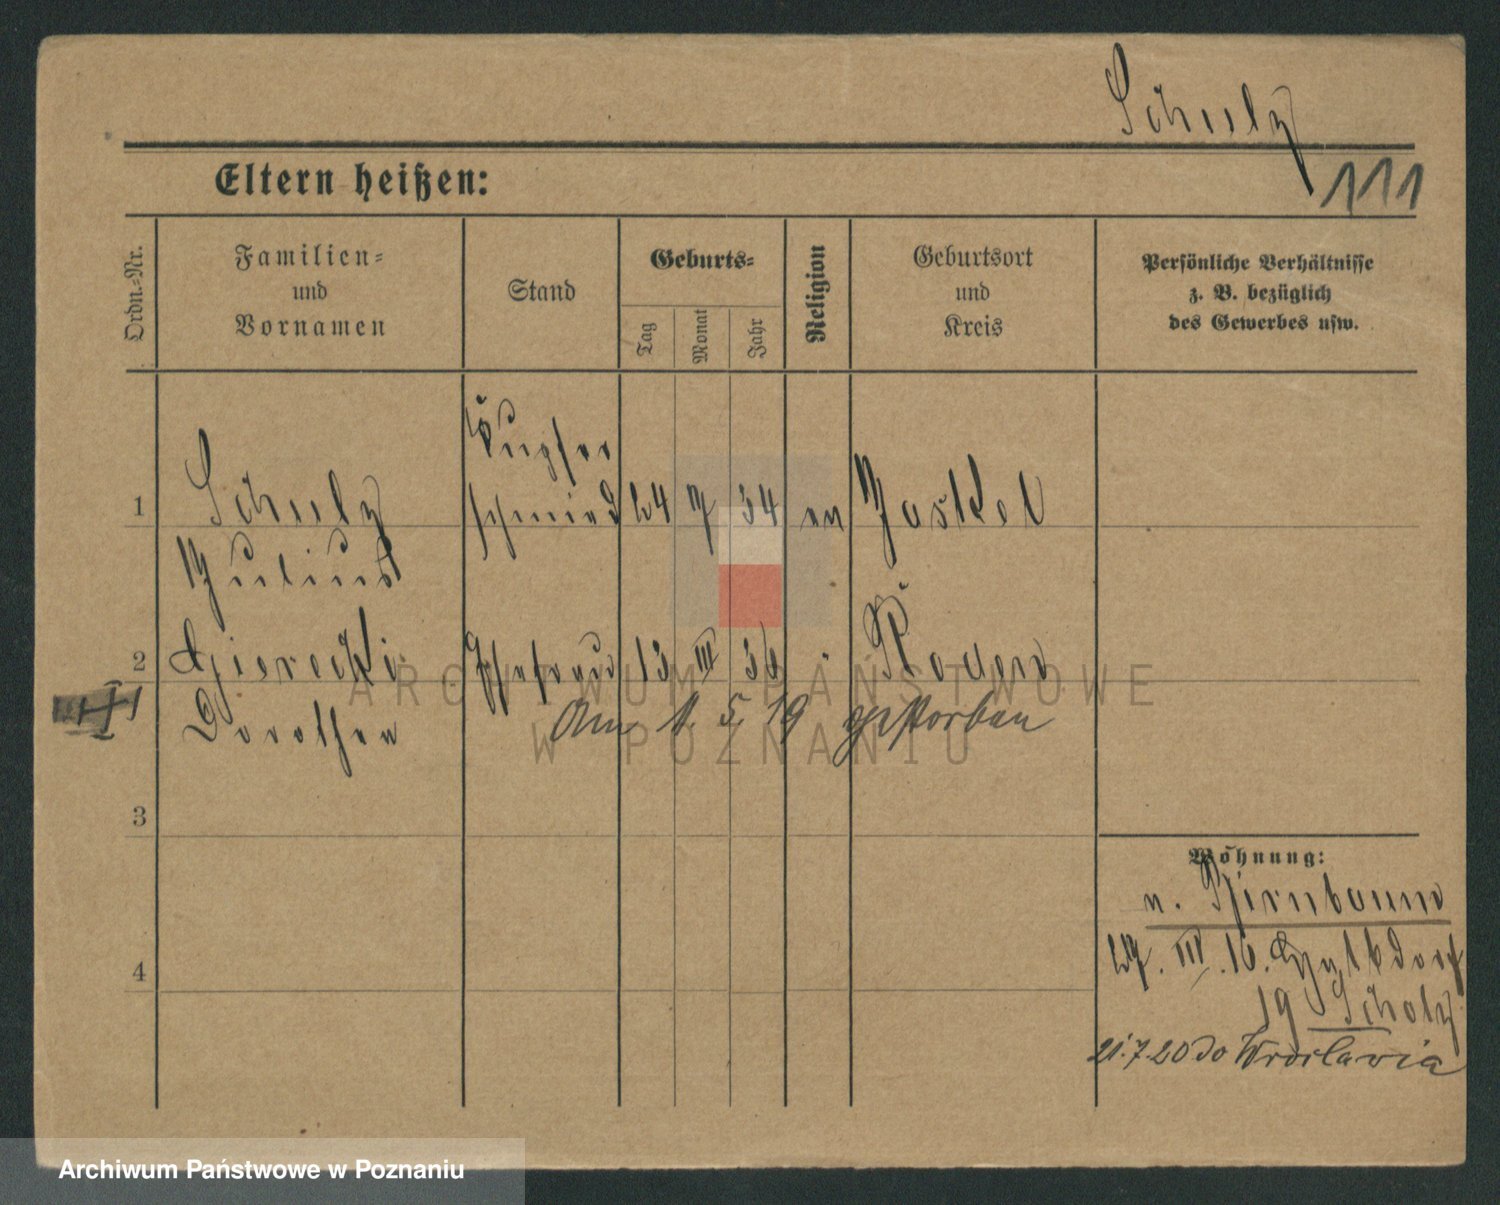 Schulz
111
Eltern heißen:
Ordn.-Nr.
Familien-
und
Vornamen
Stand
Geburts-
Tag
Monat
Jahr
Religion
Geburtsort
und
Kreis
Persönliche Verhältnisse
z. B. bezüglich
des Gewerbes usw.
1
Schulz
Julius
Kupfer
schmied
24
34
ev
2
Dorothea
Ehefrau
13
III
36
Am 1. 5. 19 gestorben
3
4
Wohnung:
n. Birnbaum
29. III. 16.
19 Scholz
21.7.20 do Wrocławia
ARCHIWUM PAŃSTWOWE
W POZNANIU
Archiwum Państwowe w Poznaniu